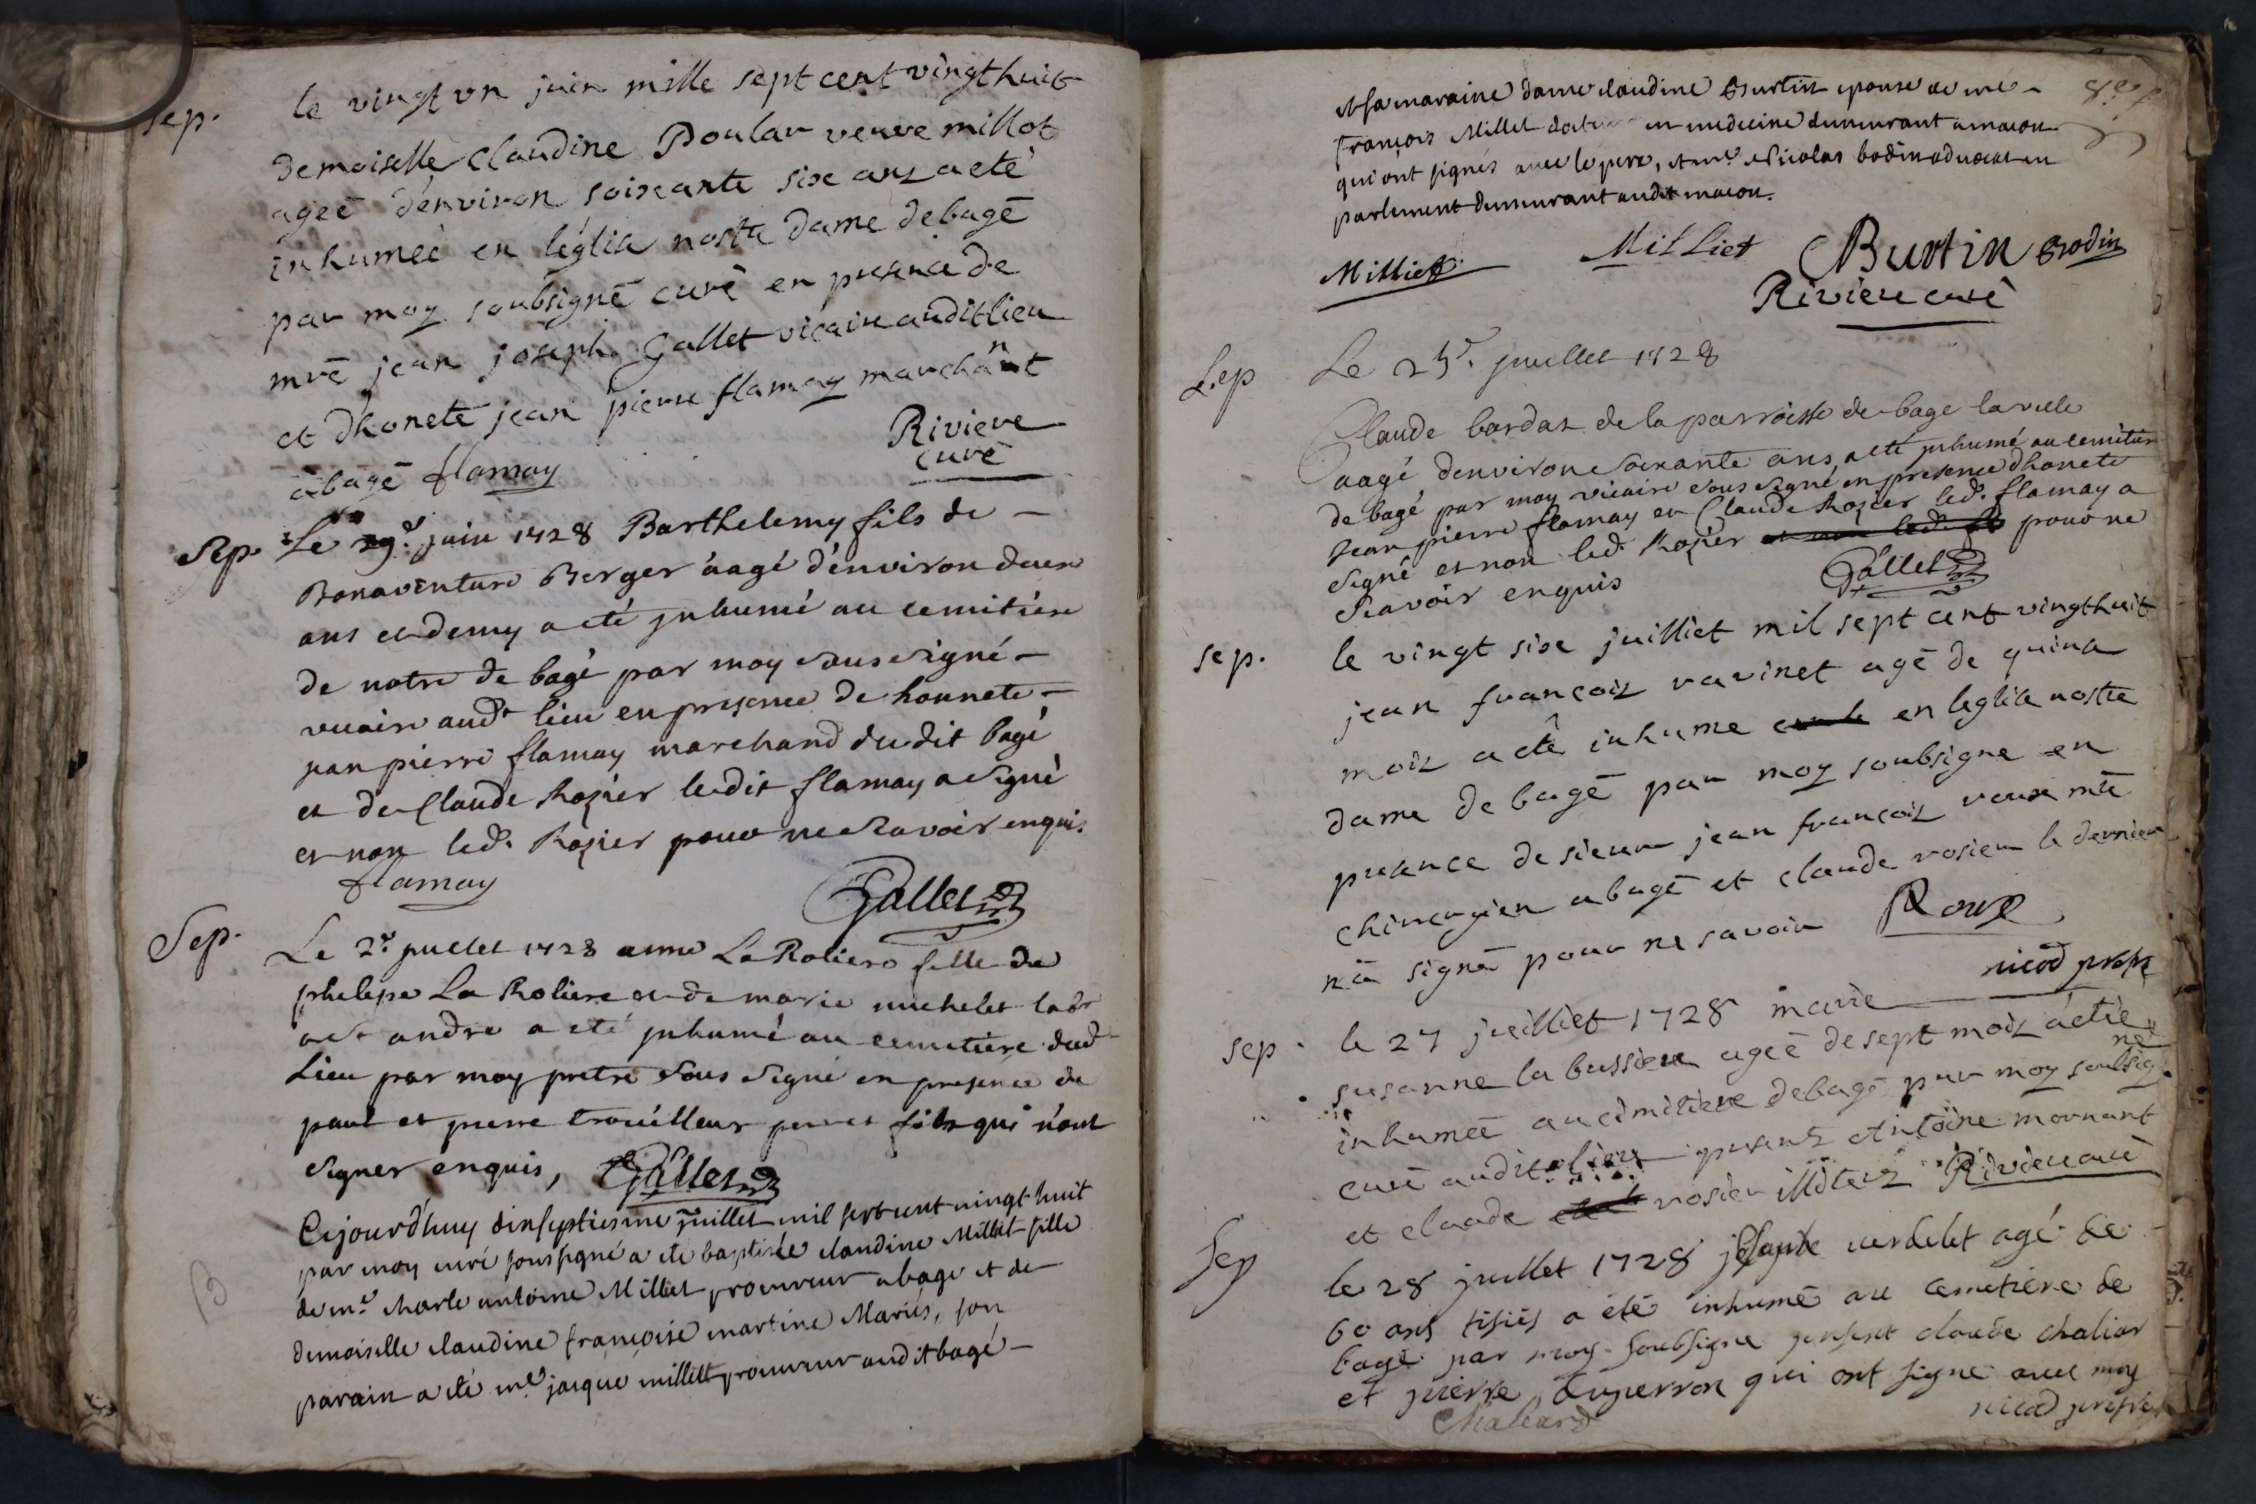 sep. le vingt vn juin mille sept cent vingt huit
demoiselle claudine Poular veuve millot
ageé d'environ soixante six ans a eté
inhumeé en leglise nostre dame de bagé
par moy soubsigné curé en presence de
mre jean joseph Gallet vicaire audit lieu
et d'honete jean pierre flamay marchant
à bagé flamay Riviere
curé
Sep. Le 29e. juin 1728 Barthelemy fils de
Bonaventure Berger aagé d'environ deux
ans et demy a eté jnhumé au cemitiere
de notre de bagé par moy sous signé
vicaire audt lieu en presence de honnete
jean pierre flamay marchand du dit bagé
et de Claude Rozier le dit flamay a signé
et non led. Rozier pour ne scavoir enquis
flamay Gallet
Sep. Le 2e juillet 1728 anne La Roliere fille de
phelipe La Roliere et de marie michelet
st andre a eté jnhumé au cemetiere dud
Lieu par moy pretre sous signé en presence de
paul et pierre trouilleur pere et fils qui n'ont
signer enquis, Gallet
Cejourd'huy dixseptiesme juillet mil sept cent vingt huit
par moy curé soussigné a eté baptisée claudine Milliet fille
de me. charle antoine Milliet procureur a bagé et de
demoiselle claudine françoise martine Mariés, son
parain a eté me jacque milliet procureur audit bagé
et sa maraine dame claudine Burtin epouse de me
françois Milliet docteur en medecine demeurant a macon
qui ont signés avec le pere, et me. Nicolas bodin advocat en
parlement demeurant audit macon.
Milliet Milliet Burtin Bodin
Riviere curé
Sep Le 25e. juillet 1728
Claude bardaz de la parroisse de bagé la ville
aagé denviron soixante ans a eté jnhumé au cemitiere
de bagé par moy vicaire sous signé en presence d'honete
Jean pierre flamay et Claude Rozier led. flamay a
signé et non led. Rozier pour ne
scavoir enquis Gallet
sep. le vingt six juilliet mil sept cent vingt huit
jean françois ravinet agé de quinze
mois a eté inhume en leglise nostre
dame de bagé par moy soubsigne en
presence de sieur jean françois roux mtre
chirurgien a bagé et claude rosier le dernier
n'a signé pour ne savoir Roux
nicod pretre
sep. le 27 juilliet 1728 marie
susanne la bussiere ageé de sept mois a été
inhumeé au cimitiere de bagé par moy soubsigné
curé audit lieu presents Antoine mornant
et claude rosier illiterés Riviere curé
Sep le 28 juillet 1728 verdelet agé de
60 ans a été inhumé au cemetiere de
bagé par moy soubsigné present claude chaliar
et pierre duperron qui ont signé avec moy
Chaliard nicod pretre